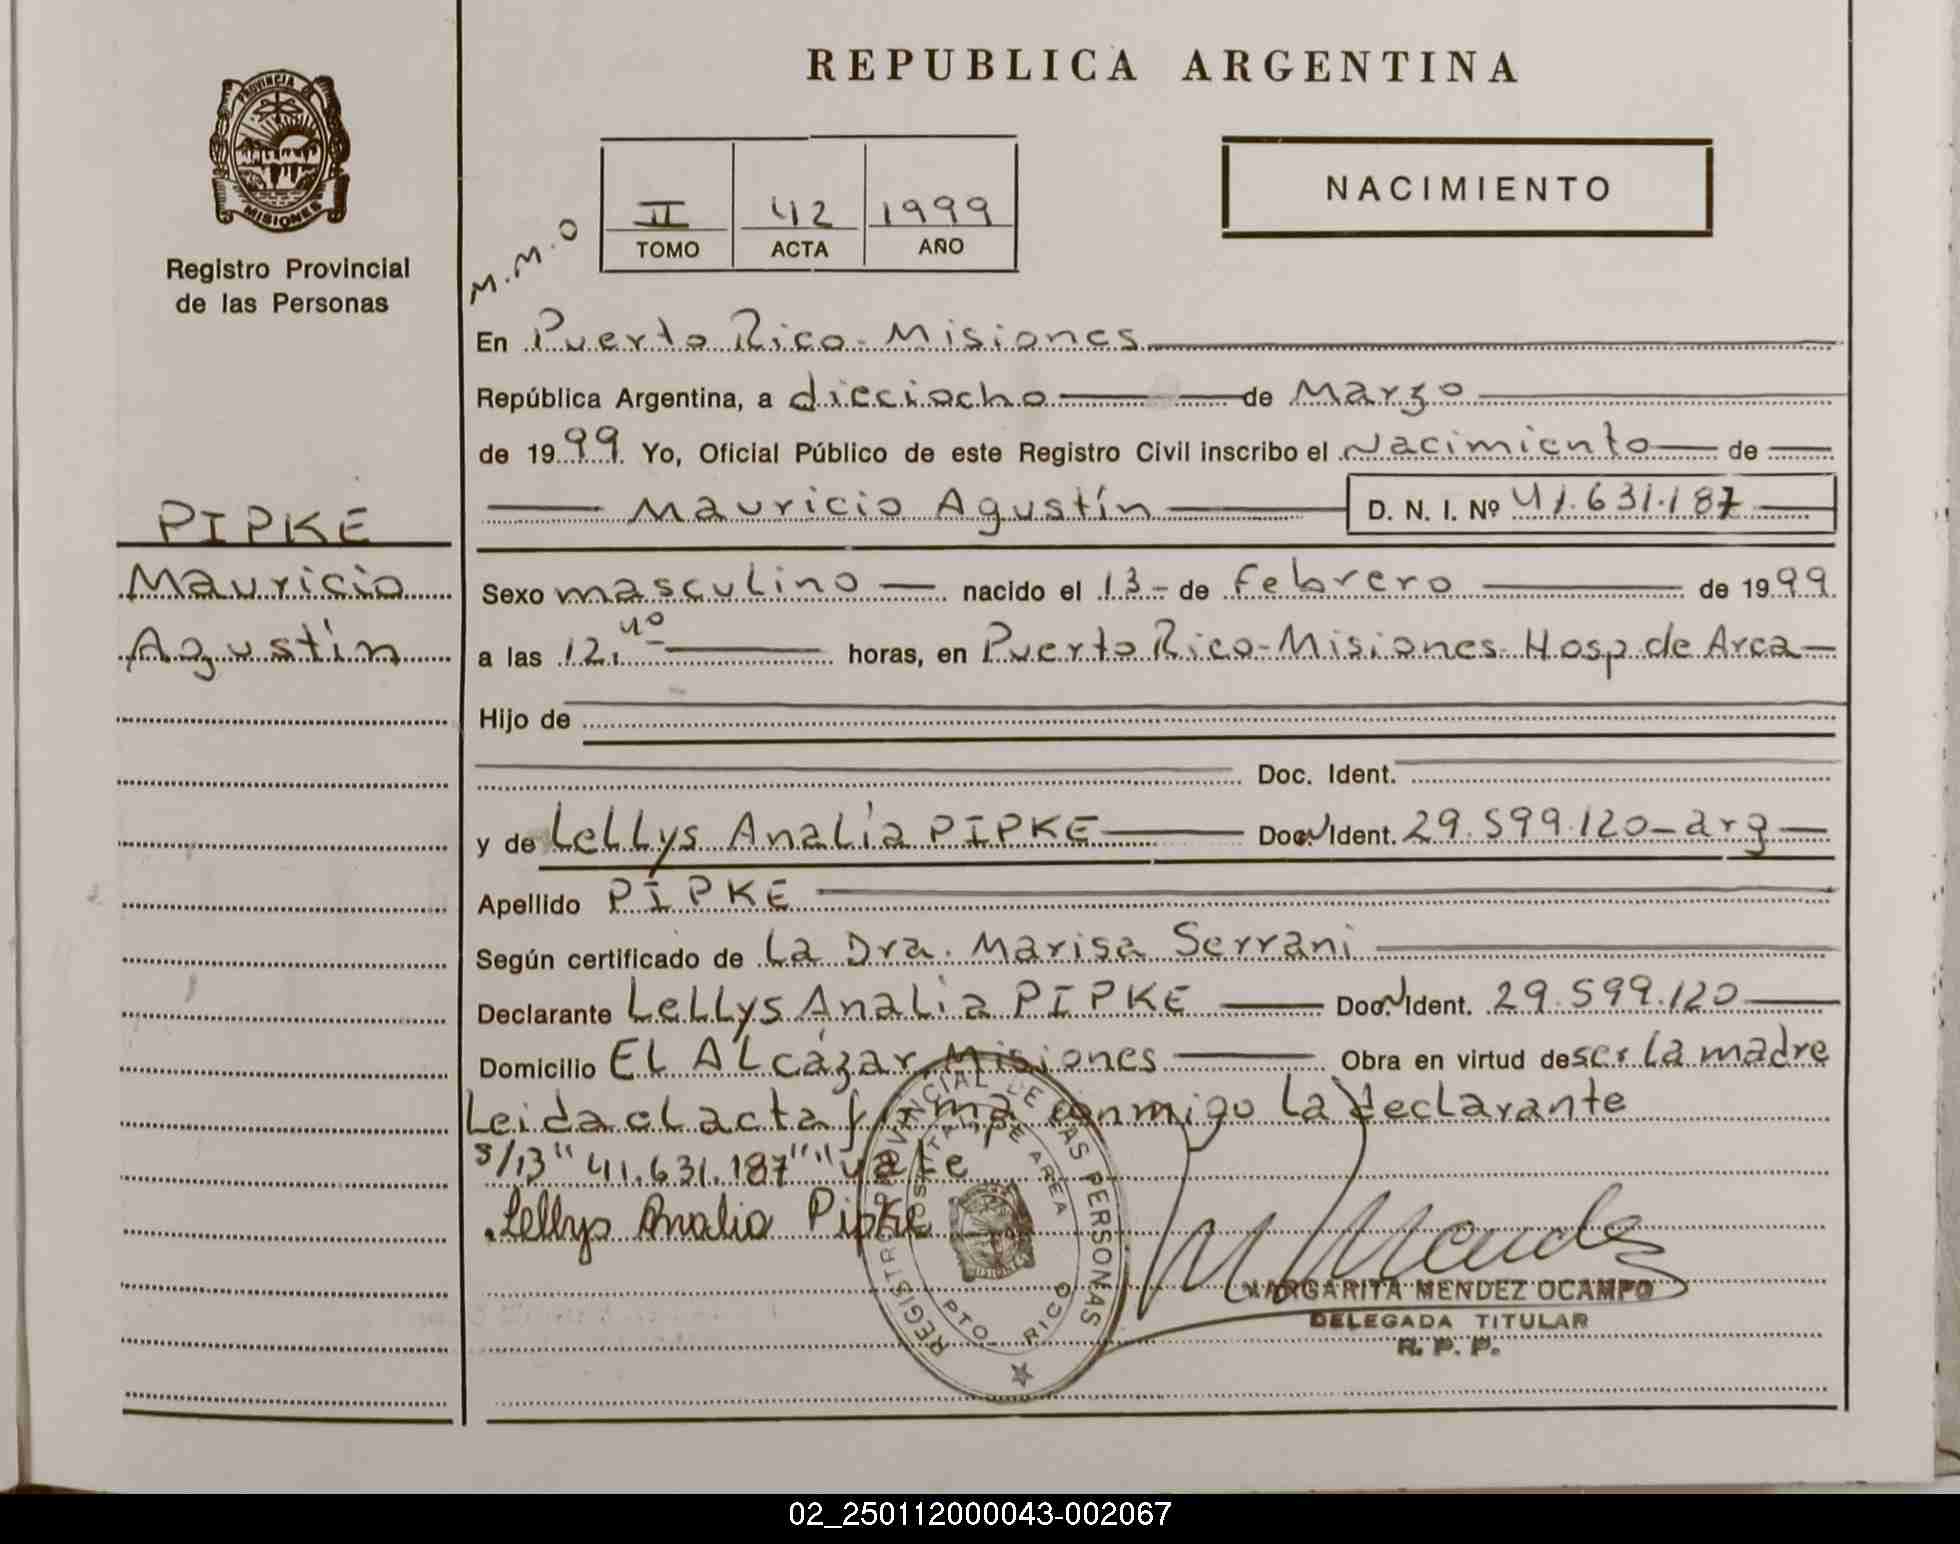 REPUBLICA ARGENTINA
PROVINCIA DE
MISIONES
Registro Provincial
de las Personas
NACIMIENTO
II 42 1999
TOMO ACTA AÑO
M.M.O
En Puerto Rico - Misiones
República Argentina, a dieciocho de Marzo
de 1999 Yo, Oficial Público de este Registro Civil inscribo el Nacimiento de
Mauricio Agustín D. N. I. Nº 41.631.187
PIPKE
Mauricio
Agustín
Sexo masculino nacido el 13 - de Febrero de 1999
a las 12,40 horas, en Puerto Rico - Misiones - Hosp de Area
Hijo de
Doc. Ident.
y de Lellys Analía PIPKE Doc. Ident. 29.599.120 - arg
Apellido PIPKE
Según certificado de La Dra. Marisa Serrani
Declarante Lellys Analia PIPKE Doc. Ident. 29.599.120
Domicilio El Alcázar, Misiones Obra en virtud de ser la madre
Leida el acta firma conmigo la declarante
s/13 "41.631.187" "vale
Lellys Analia Pipke
REGISTRO PROVINCIAL DE LAS PERSONAS
AREA
PTO. RICO
MISIONES
M Mendez
MARGARITA MENDEZ OCAMPO
DELEGADA TITULAR
R. P. P.
02_250112000043-002067